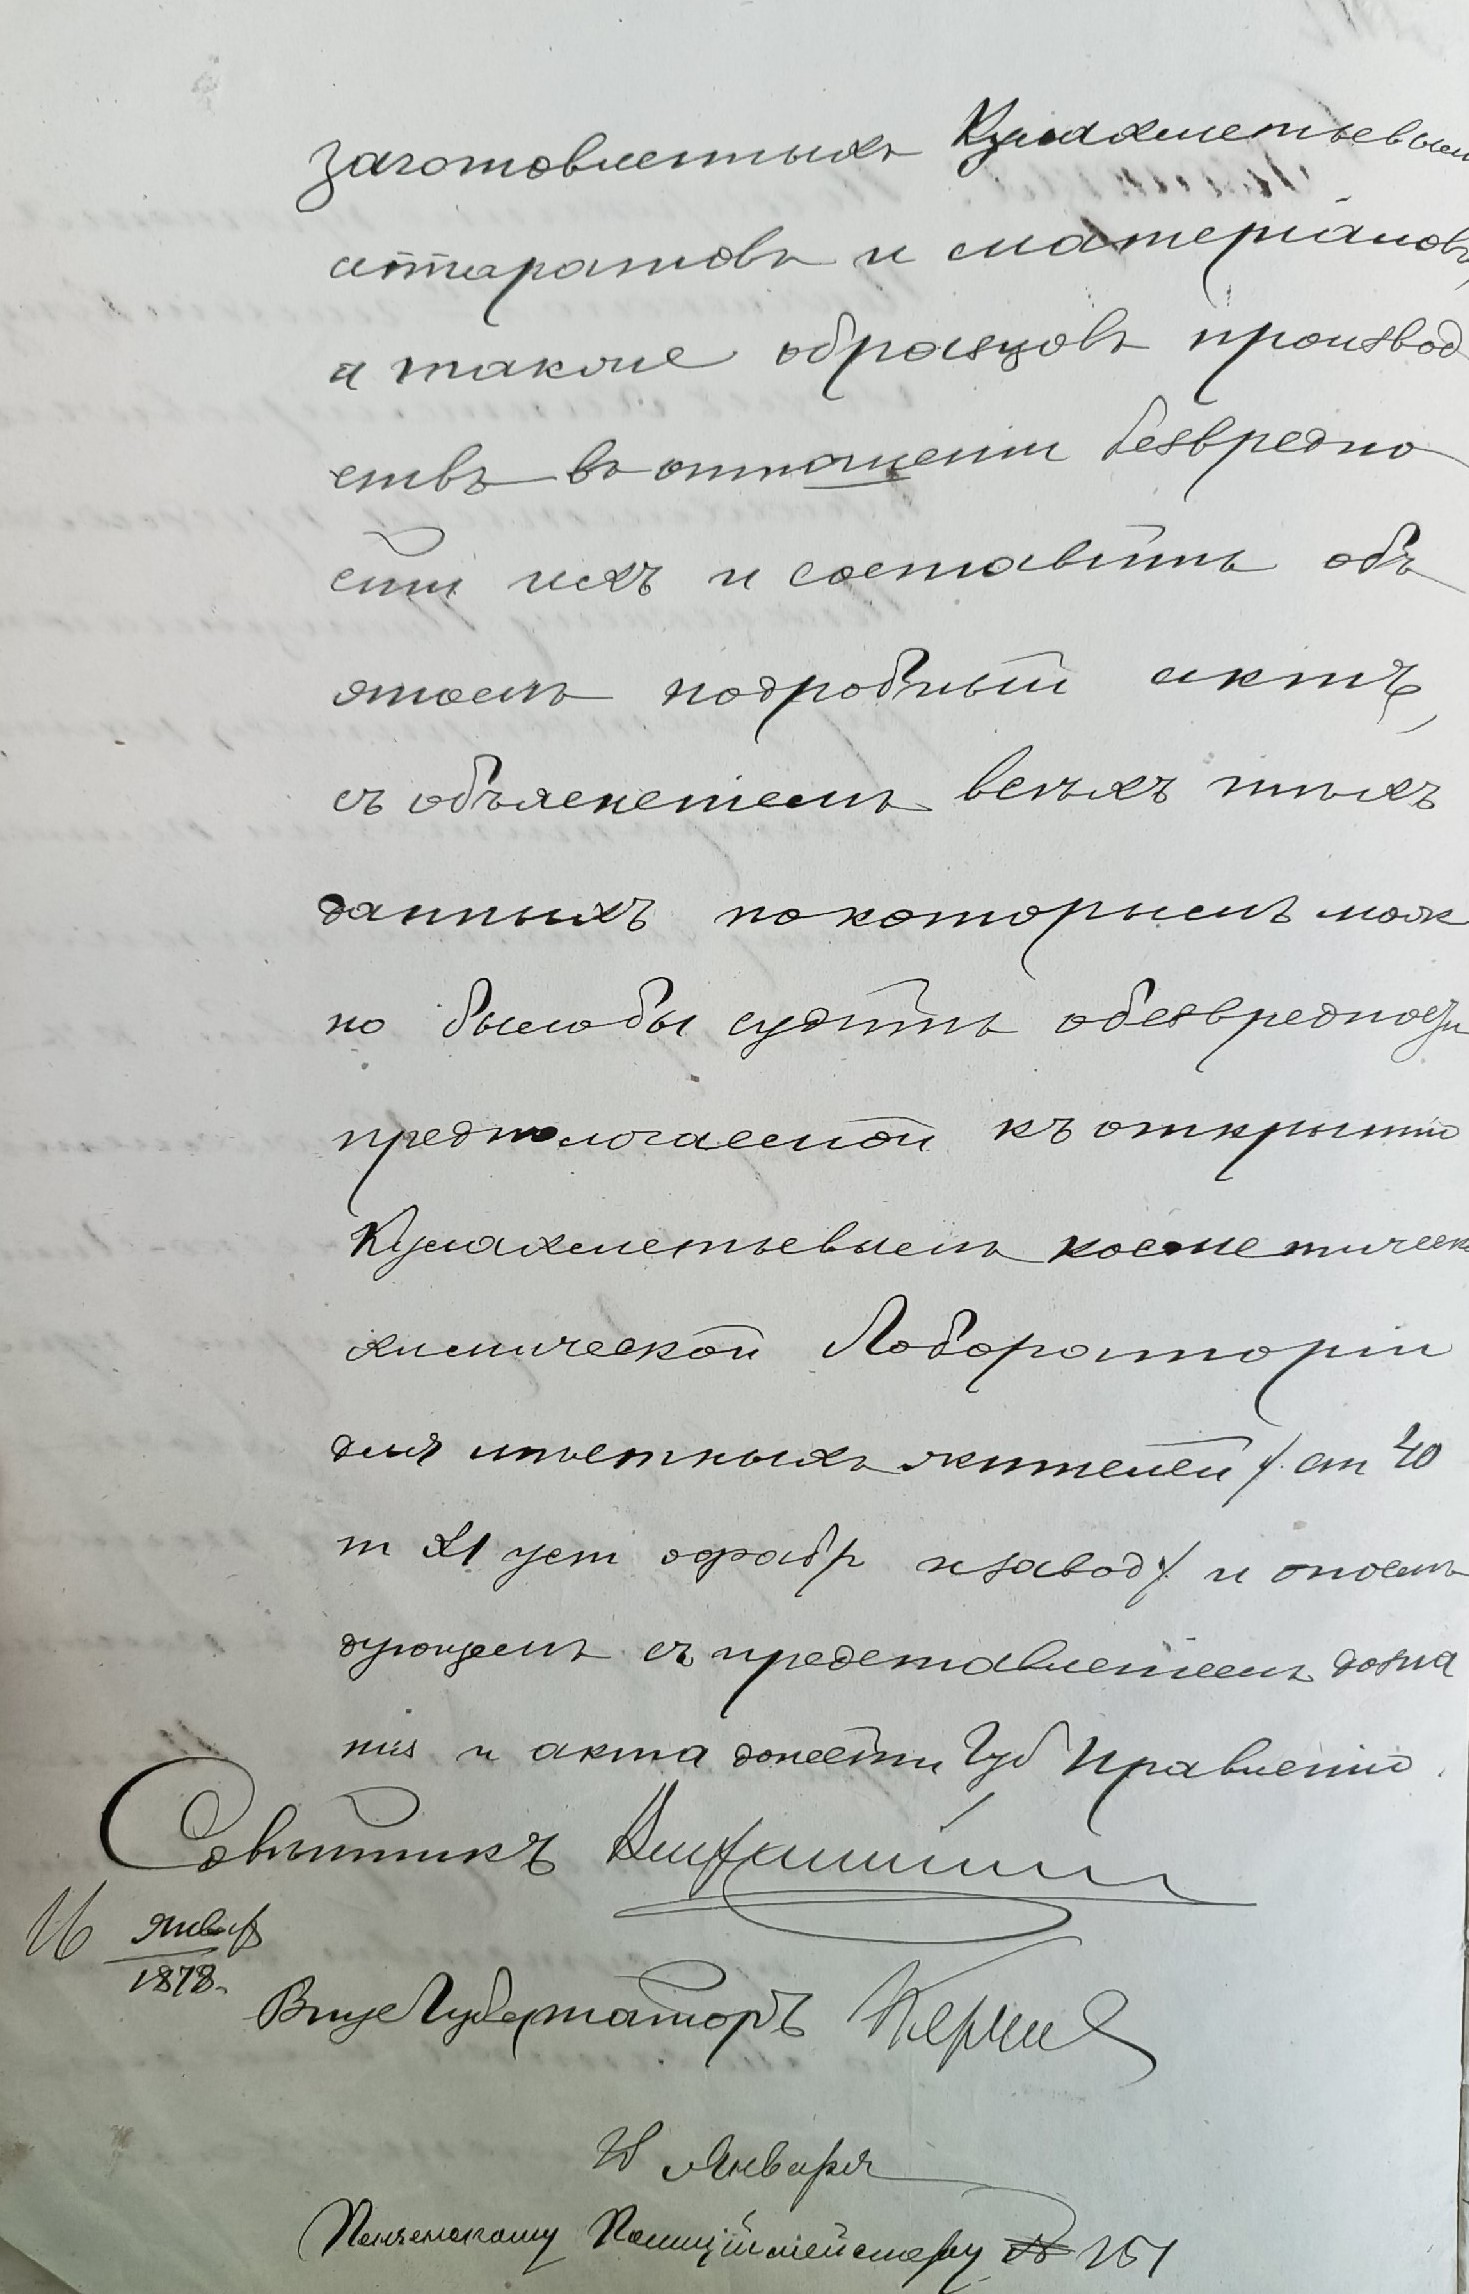 заготовленныхъ Кулахметьевым
аппаратовъ и матеріаловъ,
а также образцовъ производ
ствъ въ отношеніи безвредно
сти ихъ и составить объ
этомъ подробный актъ,
съ объясненіемъ всѣхъ тѣхъ
данныхъ по которымъ мож
но было бы судить о безвредности
предполагаемой къ открытію
Кулахметьевымъ косметическо
химической Лоборатории
для мѣстныхъ жителей /. ст 40
т XI уст о фабр и завод ./ и о послѣ
дующемъ съ представленіемъ дозна
нія и акта донести Губ Правленію.
Совѣтникъ
16 январ
1878.
Вице Губернаторъ
Января
Пензенскому Полиціймейстеру № 151